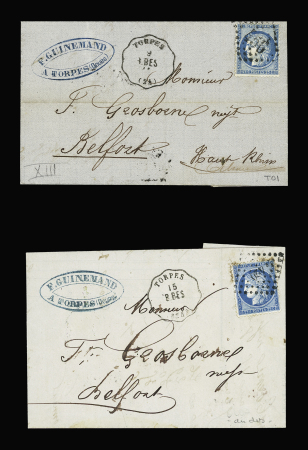 F. GUINEMAND
A TORPES (Doubs)
TORPES
9
(54)
Monsieur
F. Grosborne négt
Belfort
Haut Rhin
XIII
T01
F. GUINEMAND
A TORPES (Doubs)
TORPES
15
Monsieur
Fs Grosborne
négt
Belfort
au dos